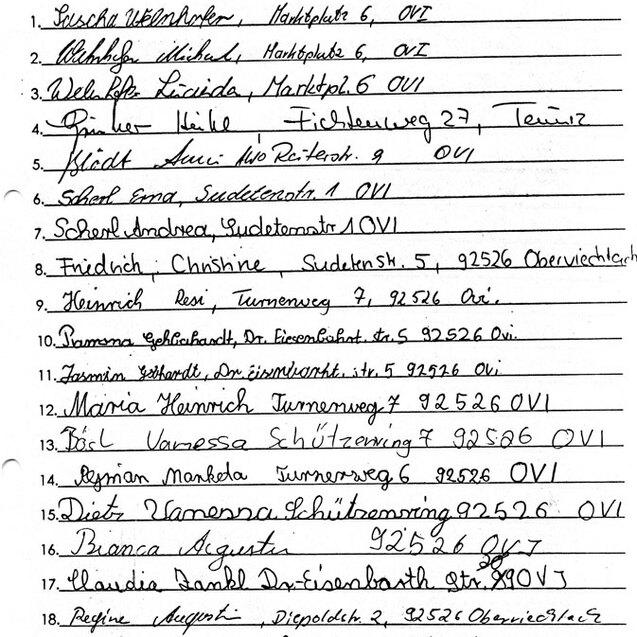 1. Sascha Welnhofer, Marktplatz 6, OVI
2. Welnhofer Michael, Marktplatz 6, OVI
3. Welnhofer Lucinda, Marktpl. 6 OVI
4. Heike, Fichtenweg 27, Teunz
5. Reiterstr. 9 OVI
6. Scherl Erna, Sudetenstr. 1 OVI
7. Scherl Andrea, Sudetenstr 1 OVI
8. Friedrich, Christine, Sudetenstr. 5, 92526 Oberviechtach
9. Heinrich Resi, Turnerweg 7, 92526 Ovi.
10. Ramona Gebhardt, Dr. Eisenbahrt. str. 5 92526 Ovi.
11. Jasmin Gebhardt, Dr. Eisenbarht. str. 5 92526 Ovi
12. Maria Heinrich Turnerweg 7 92526 OVI
13. Bösl Vanessa Schützenring 7 92526 OVI
14. Marketa Turnerweg 6 92526 OVI
15. Dietz Vanessa Schützenring 92526 OVI
16. Bianca Augustin 92526 OVI
17. Claudia Zankl Dr-Eisenbarth Str. OVI
18. Regine Augustin, Diepoldstr. 2, 92526 Oberviechtach